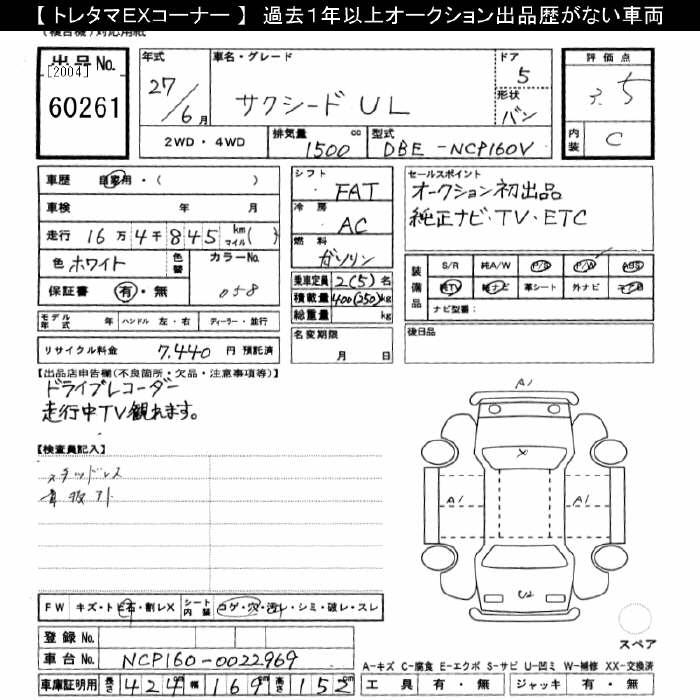 【 トレタマEXコーナー 】 過去1年以上オークション出品歴がない車両
(複合機)対応用紙
出品No.
[2004]
60261
年式
27/6月
車名・グレード
サクシード UL
ドア
5
形状
バン
評価点
3.5
内装
C
2WD・4WD
排気量
1500 cc
型式
DBE-NCP160V
車歴 自家用・( )
車検 年 月
走行 16万4千845 km マイル( )
色 ホワイト
色替
カラーNo.
058
保証書 有・無
モデル年式 年 ハンドル 左・右 ディーラー・並行
リサイクル料金 7,440 円 預託済
シフト
FAT
冷房
AC
燃料
ガソリン
乗車定員 2(5)名
積載量 400(250)kg
総重量 kg
名変期限
月 日
セールスポイント
オークション初出品
純正ナビ・TV・ETC
装備品
S/R 純A/W P/S P/W ABS
純TV 純ナビ 革シート 外ナビ
ナビ型番:
後日品
【出品店申告欄(不良箇所・欠品・注意事項等)】
ドライブレコーダー
走行中TV観れます。
【検査員記入】
スタッドレス
FW キズ・トビ石・割レX シート内装 コゲ・穴・汚レ・シミ・破レ・スレ
登録No.
車台No. NCP160-0022969
車庫証明用 長さ 424cm 幅 169cm 高さ 152cm
A1
X
A1
A1
U2
スペア
A-キズ C-腐食 E-エクボ S-サビ U-凹ミ W-補修 XX-交換済
工具 有・無 ジャッキ 有・無